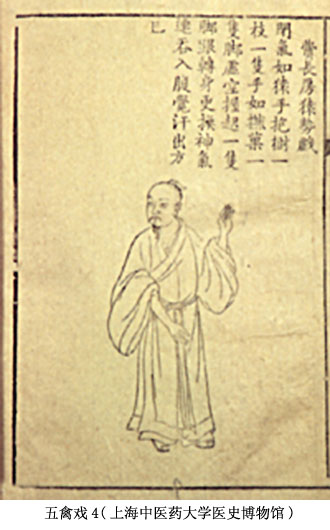 費長房猿勢戲
閉氣如猿手抱樹一
枝一隻手如撚菓一
隻脚虛空握起一隻
脚跟轉身更換神氣
連吞入腹覺汗出方
已
五禽戏 4( 上海中医药大学医史博物馆 )